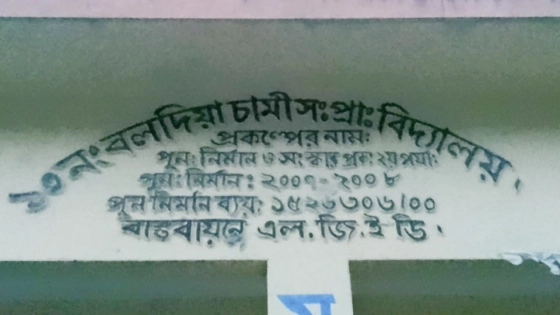 নং বলদিয়া চামী সঃ প্রাঃ বিদ্যালয়।
প্রকল্পের নাম:
পুন: নির্মান ও সংস্কার প্রক: ২য় পর্যা:
পুন: নির্মান: ২০০৭-২০০৮
পুন নির্মান ব্যয়:
বাস্তবায়নে এল.জি.ই ডি.